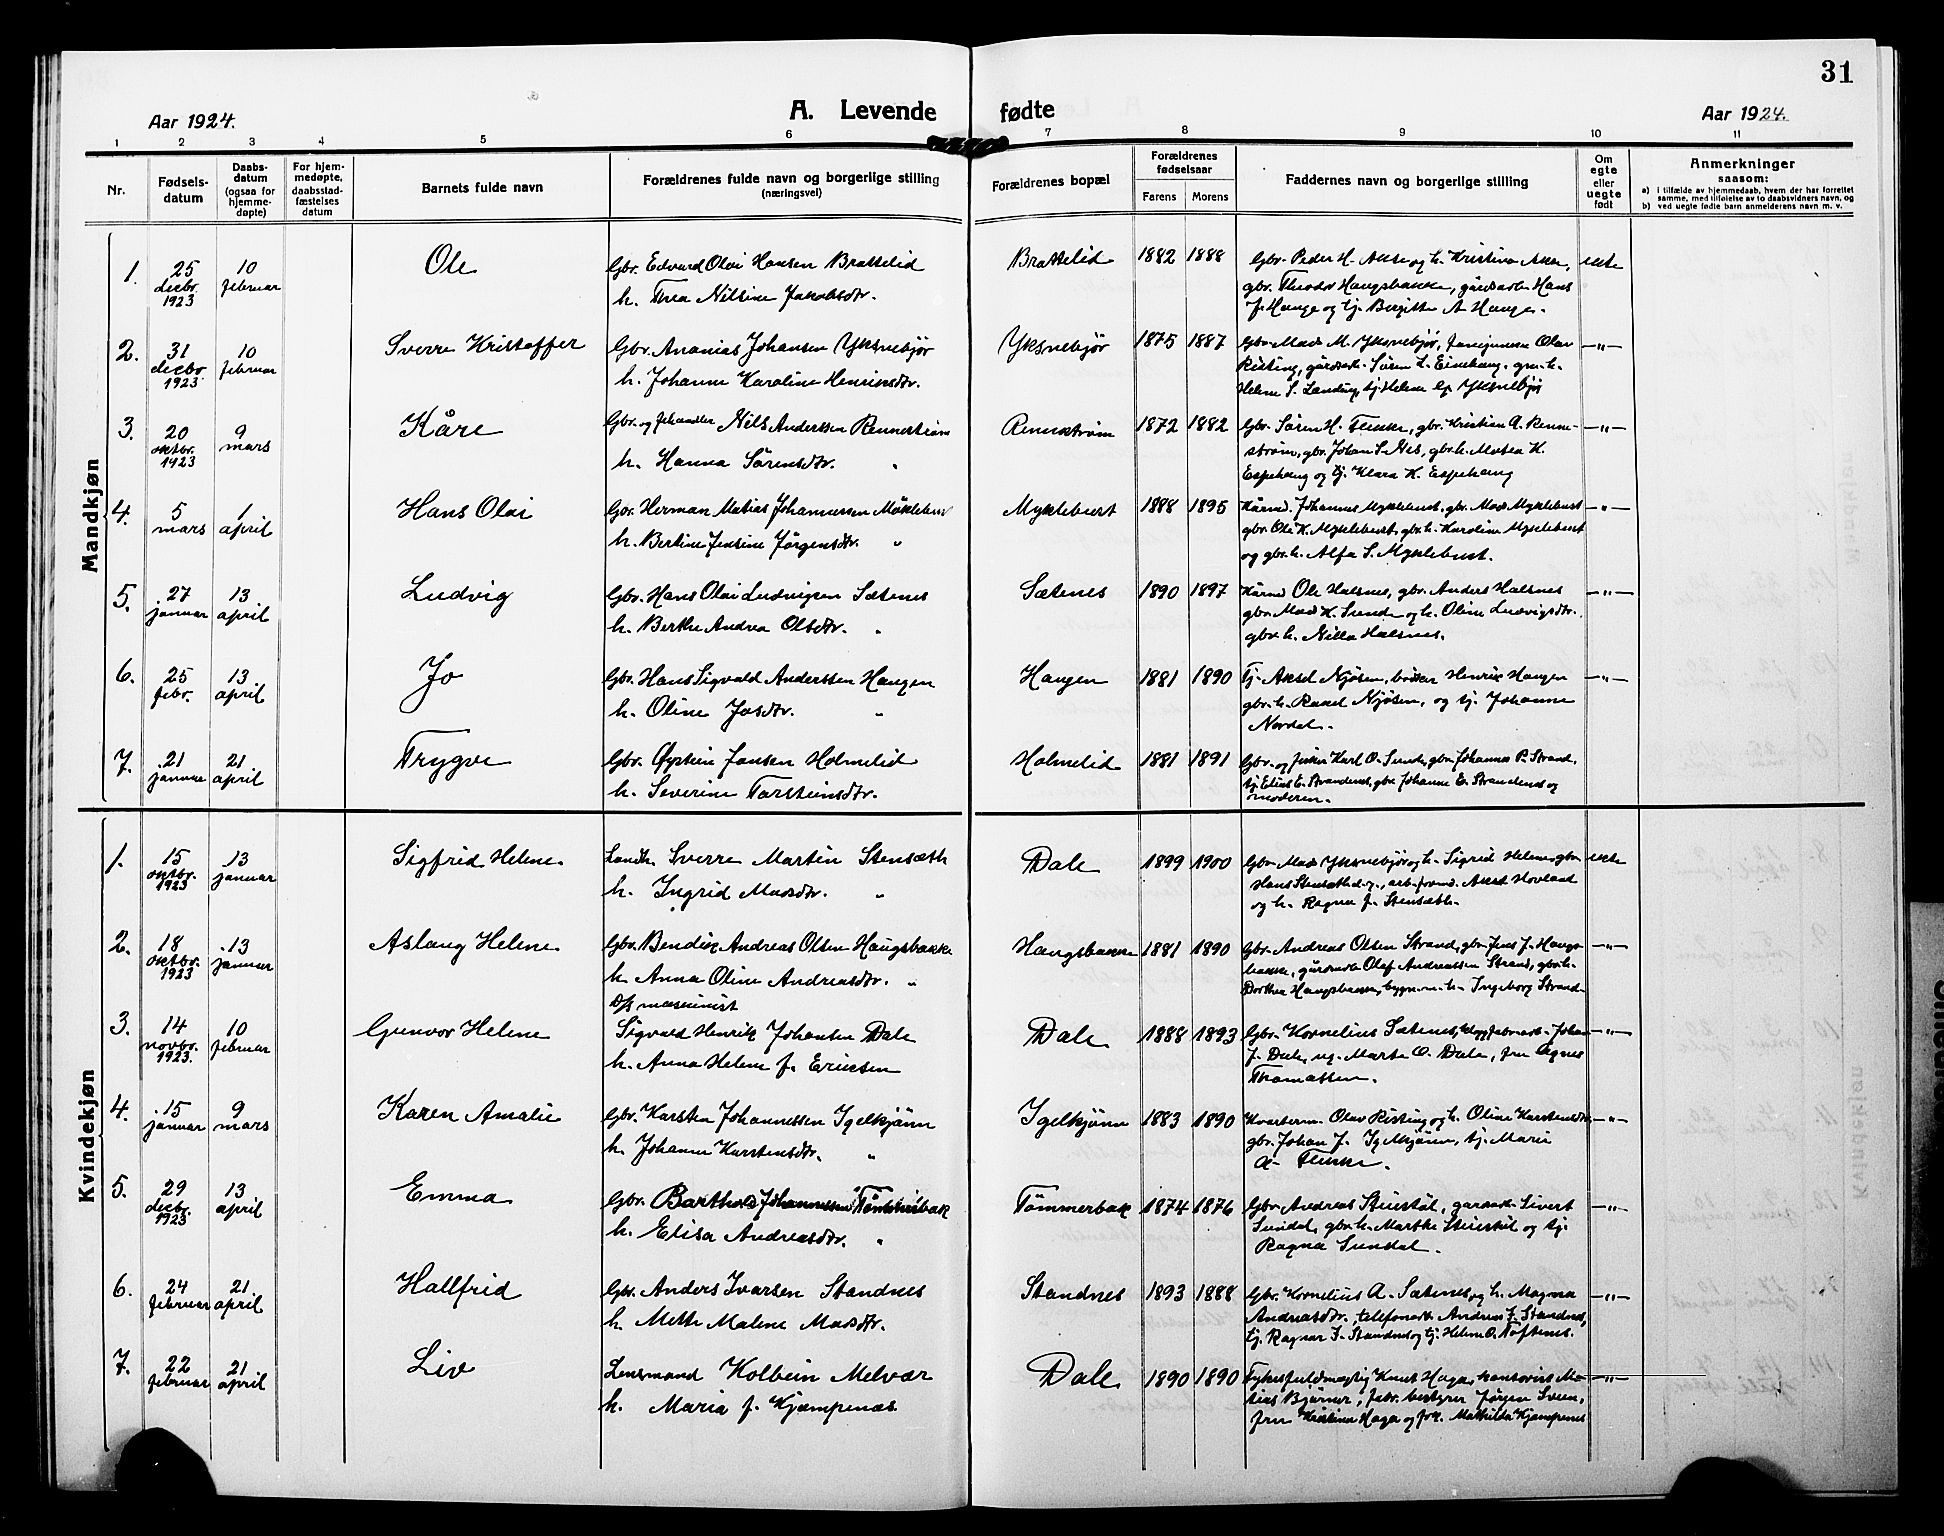 31
Aar 1924.
A. Levende fødte
Aar 1924.
1 2 3 4 5 6 7 8 9 10 11
Nr.
Fødselsdatum
Daabsdatum (ogsaa for hjemmedøpte)
For hjemmedøpte, daabsstadfæstelses datum
Barnets fulde navn
Forældrenes fulde navn og borgerlige stilling (næringsvei)
Forældrenes bopæl
Forældrenes fødselsaar
Farens Morens
Faddernes navn og borgerlige stilling
Om egte eller uegte født
Anmerkninger
saasom:
a) i tilfælde av hjemmedaab, hvem der har forrettet samme, med tilføielse av to daabsvidners navn, og
b) ved uegte fødte barn anmelderens navn m. v.
Mandkjøn
1. 25 decbr. 1923 10 februar Ole
Gbr. Edvard Olai Hansen Brattelid
h. Thea Nilsine Jakobsdtr.
Brattelid 1882 1888
Gbr. Peder H. Aase og h. Kristina Aase,
gbr. Theodor Haugsbakke, gårdarb. Hans
J. Hauge og tj. Birgitte A. Hauge.
ekte
2. 31 decbr. 1923 10 februar Sverre Kristoffer
Gbr. Ananias Johansen Yksnebjør
h. Johanne Karoline Henriksdtr.
Yksnebjør 1875 1887
Gbr. Mads M. Yksnebjør, Olav
Risting, gårdarb. Søren L. Einehaug,
Helene S. Landing, tj. Helene Yksnebjør
—"—
3. 20 oktbr. 1923 9 mars Kåre
Gbr. og Nils Anderssen Rennestrøm
h. Hanna Sørensdtr. "
Rennestrøm 1872 1882
Gbr. Søren H. Flekke, gbr. Kristian A. Rennestrøm,
gbr. Johan S. Nes, gbr.h. Matea K.
Espehaug og tj. Klara K. Espehaug
—"—
4. 5 mars 1 april Hans Olai
Gbr. Herman Matias Johannessen Myklebust
h. Bertine Jensine Jørgensdtr. "
Myklebust 1888 1895
Kårmd. Johannes Myklebust, gbr. Mads Myklebust
gbr. Ole K. Myklebust, gbr.h. Karoline Myklebust
og gbr.h. Alfa S. Myklebust.
—"—
5. 27 januar 13 april Ludvig
Gbr. Hans Olai Ludvigsen Sætenes
h. Berthe Andrea Olsdtr. "
Sætenes 1890 1897
Kårmd Ole Halsnes, gbr. Anders Halsnes
gbr. Mads K. Sunde og h. Oline Ludvigsdtr.
gbr.h. Nilla Halsnes.
—"—
6. 25 febr. 13 april Jo
Gbr. Hans Sigvald Anderssen Haugen
h. Oline Josdtr. "
Haugen 1881 1890
Tj. Aksel Njøsen, bøkker Henrik Haugen
gbr.h. Rakel Njøsen, og tj. Johanne
Nordal.
—"—
7. 21 januar 21 april Trygve
Gbr. Øystein Jonsen Holmelid
h. Severine Torsteinsdtr.
Holmelid 1881 1891
Gbr. og fisker Karl O. Sunde, gbr. Johannes P. Strand,
tj. Elias E. Strandenes, gbr. Johanne E. Strandenes og
moderen.
Kvindekjøn
1. 15 oktbr. 1923 13 januar Sigfrid Helene.
Landh. Sverre Martin Stensæth
h. Ingrid Madsdtr. "
Dale 1899 1900
Gbr. Mads Yksnebjør og h. Sigrid Helene, gbr.
Hans Stensæth d.y., arb.formd. Aksel Hovland
og h. Ragna f. Stensæth.
ekte
2. 18 oktbr. 1923 13 januar Aslaug Helene
Gbr. Bendik Andreas Olsen Haugsbakke
h. Anna Oline Andreasdtr. "
Haugsbakke 1881 1890
Gbr. Andreas Olsen Strand, gbr. Jens J. Haugsbakke,
gårdarb. Olaf Andreassen Strand, gbr.h.
Dorthea Haugsbakke, Ingeborg Strand.
—"—
3. 14 novbr. 1923. 10 februar Gunvor Helene
D/s maskinist
Sigvald Henrik Johansen Dale
h. Anna Helene f. Ericsen
Dale 1888 1893
Gbr. Kornelius Sætenes, Johan
J. Dale, ug. Marta O. Dale, fru Agnes
Thomassen.
—"—
4. 15 januar 9 mars Karen Amalie
Gbr. Karsten Johannessen Igelkjønn
h. Johanne Karstensdtr. "
Igelkjønn 1883 1890
Kvarterm. Olav Risting og h. Oline Karstensdtr.
gbr. Johan J. Igelkjønn, tj. Marie
A. Flekke.
—"—
5. 29 decbr. 1923 13 april Emma
Gbr. Barthold Johannessen Tømmerbak
h. Elisa Andreasdtr. "
Tømmerbak 1874 1876
Gbr. Andreas Steiestøl, gardarb. Sivert
Sundal, gbr.h. Marthe Steiestøl og tj.
Ragna Sundal.
—"—
6. 24 februar 21 april Hallfrid
Gbr. Anders Ivarsen Standnes
h. Mette Malene Madsdtr.
Standnes 1893 1888
Gbr. Kornelius A. Sætenes og h. Magna
Andreasdtr., telefonarb. Andreas J. Standnes,
tj. Ragnar I. Standnes og tj. Helene O. Tøftenes.
—"—
7. 22 februar 21 april Liv
Lensmand Kolbein Melvær
h. Maria f. Kjempenæs
Dale 1890 1890
Fylkesfuldmægtig Knut Haga, kontorist Matias
Bjørner, fabr. bestyrer Jørgen Sveen,
fru Kristina Haga og frk. Mathilda Kjempenes
—"—